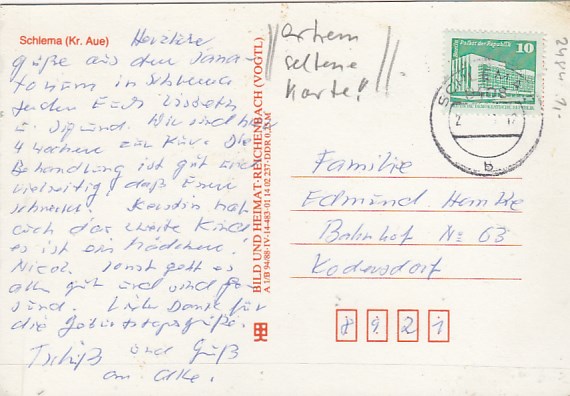 Schlema (Kr. Aue)
Herzliche
Grüße aus dem Sana-
torium in Schlema
senden Euch Lisbeth
u. Sigmund. Wir sind hier
4 Wochen zur Kur. Die
Behandlung ist gut und
vielseitig, daß Eure
Kerstin hat
auch das zweite Kind
es ist ein Mädchen!
Nicol. Sonst geht es
allen gut und sind ge-
sund. Liebe Danke für
die Geburtstagsgrüße.
Tschüß und Gruß
an alle.
BILD UND HEIMAT-REICHENBACH (VOGTL)
A 1/B 94/88-IV-14-483-01 14 02 237-DDR 0,20 M
extrem
seltene
Karte!
Palast der Republik
10
Familie
Edmund
Bahnhof No 63
Kodersdorf
8 9 2 1
b